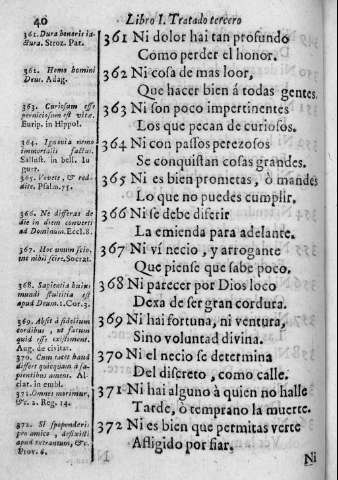 40
Libro I. Tratado tercero
361. Dura honoris ia-
ctura. Stroz. Pat.
361 Ni dolor hai tan profundo
Como perder el honor.
361. Homo homini
Deus. Adag.
362 Ni cosa de mas loor,
Que hacer bien á todas gentes.
363. Curiosum esse
perniciosum est vitæ.
Eurip. in Hippol.
363 Ni son poco impertinentes
Los que pecan de curiosos.
364. Ignavia nemo
immortalis factus.
Sallust. in bell. Iu
gurt.
364 Ni con passos perezosos
Se conquistan cosas grandes.
365. Vovete, & red-
dite. Psalm. 75.
365 Ni es bien prometas, ò mandes
Lo que no puedes cumplir.
366. Ne differas de
die in diem converti
ad Dominum. Eccl. 8.
366 Ni se debe diferir
La emienda para adelante.
367. Hoc unum scio,
me nihil scire. Socrat.
367 Ni ví necio, y arrogante
Que piense que sabe poco.
368. Sapientia huius
mundi stultitia est
apud Deum. 1. Cor. 3.
368 Ni parecer por Dios loco
Dexa de ser gran cordura.
369. Absit à fidelium
cordibus, ut fatum
quid esse existiment.
Aug. de civitat.
369 Ni hai fortuna, ni ventura,
Sino voluntad divina.
370. Cum tacet haud
differt quicquam à sa-
pientibus amens. Al-
ciat. in embl.
370 Ni el necio se determina
Del discreto, como calle.
371. Omnes morimur,
&c. 2. Reg. 14.
371 Ni hai alguno à quien no halle
Tarde, ò temprano la muerte.
372. Si spoponderis
pro amico, defixisti
apud extraneum, &c.
Prov. 6.
372 Ni es bien que permitas verte
Afligido por fiar.
Ni